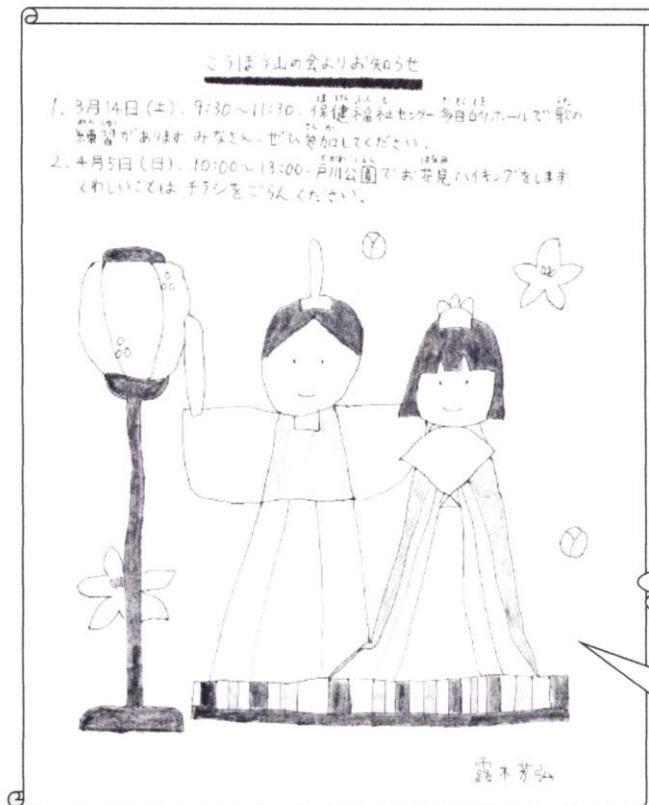 こうぼう山の会よりお知らせ
1. 3月14日(土). 9:30〜11:30. 保健福祉センター 多目的ホールで 歌の
練習があります. みなさん. ぜひ参加してください.
2. 4月5日(日). 10:00〜13:00. 戸川公園でお花見ハイキングをします
くわしいことは チラシをごらんください.
露木芳弘